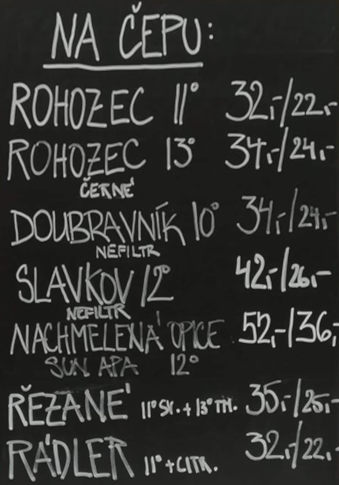 NA ČEPU:
ROHOZEC 11° 32,-/22,-
ROHOZEC 13° 34,-/24,-
ČERNÉ
DOUBRAVNÍK 10° 34,-/24,-
NEFILTR
SLAVKOV 12° 42,-/26,-
NEFILTR
NACHMELENÁ OPICE 52,-/36,-
SUN APA 12°
ŘEZANÉ 11°SV.+13°TM. 35,-/25,-
RÁDLER 11°+CITR. 32,-/22,-